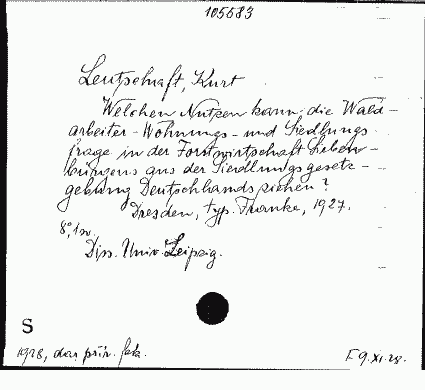 105583
Leutschaft, Kurt
Welchen Nutzen kann die Wald-
arbeiter-Wohnungs- und Siedlungs
frage in der Forstwirtschaft Sieben-
bürgens aus der Siedlungsgesetz-
gebung Deutschlands ziehen?
Dresden, typ. Franke, 1927.
8°, 1 sv.
Diss. Univ. Leipzig.
S
1928, dar, přír. fak.
F 9.XI.28.